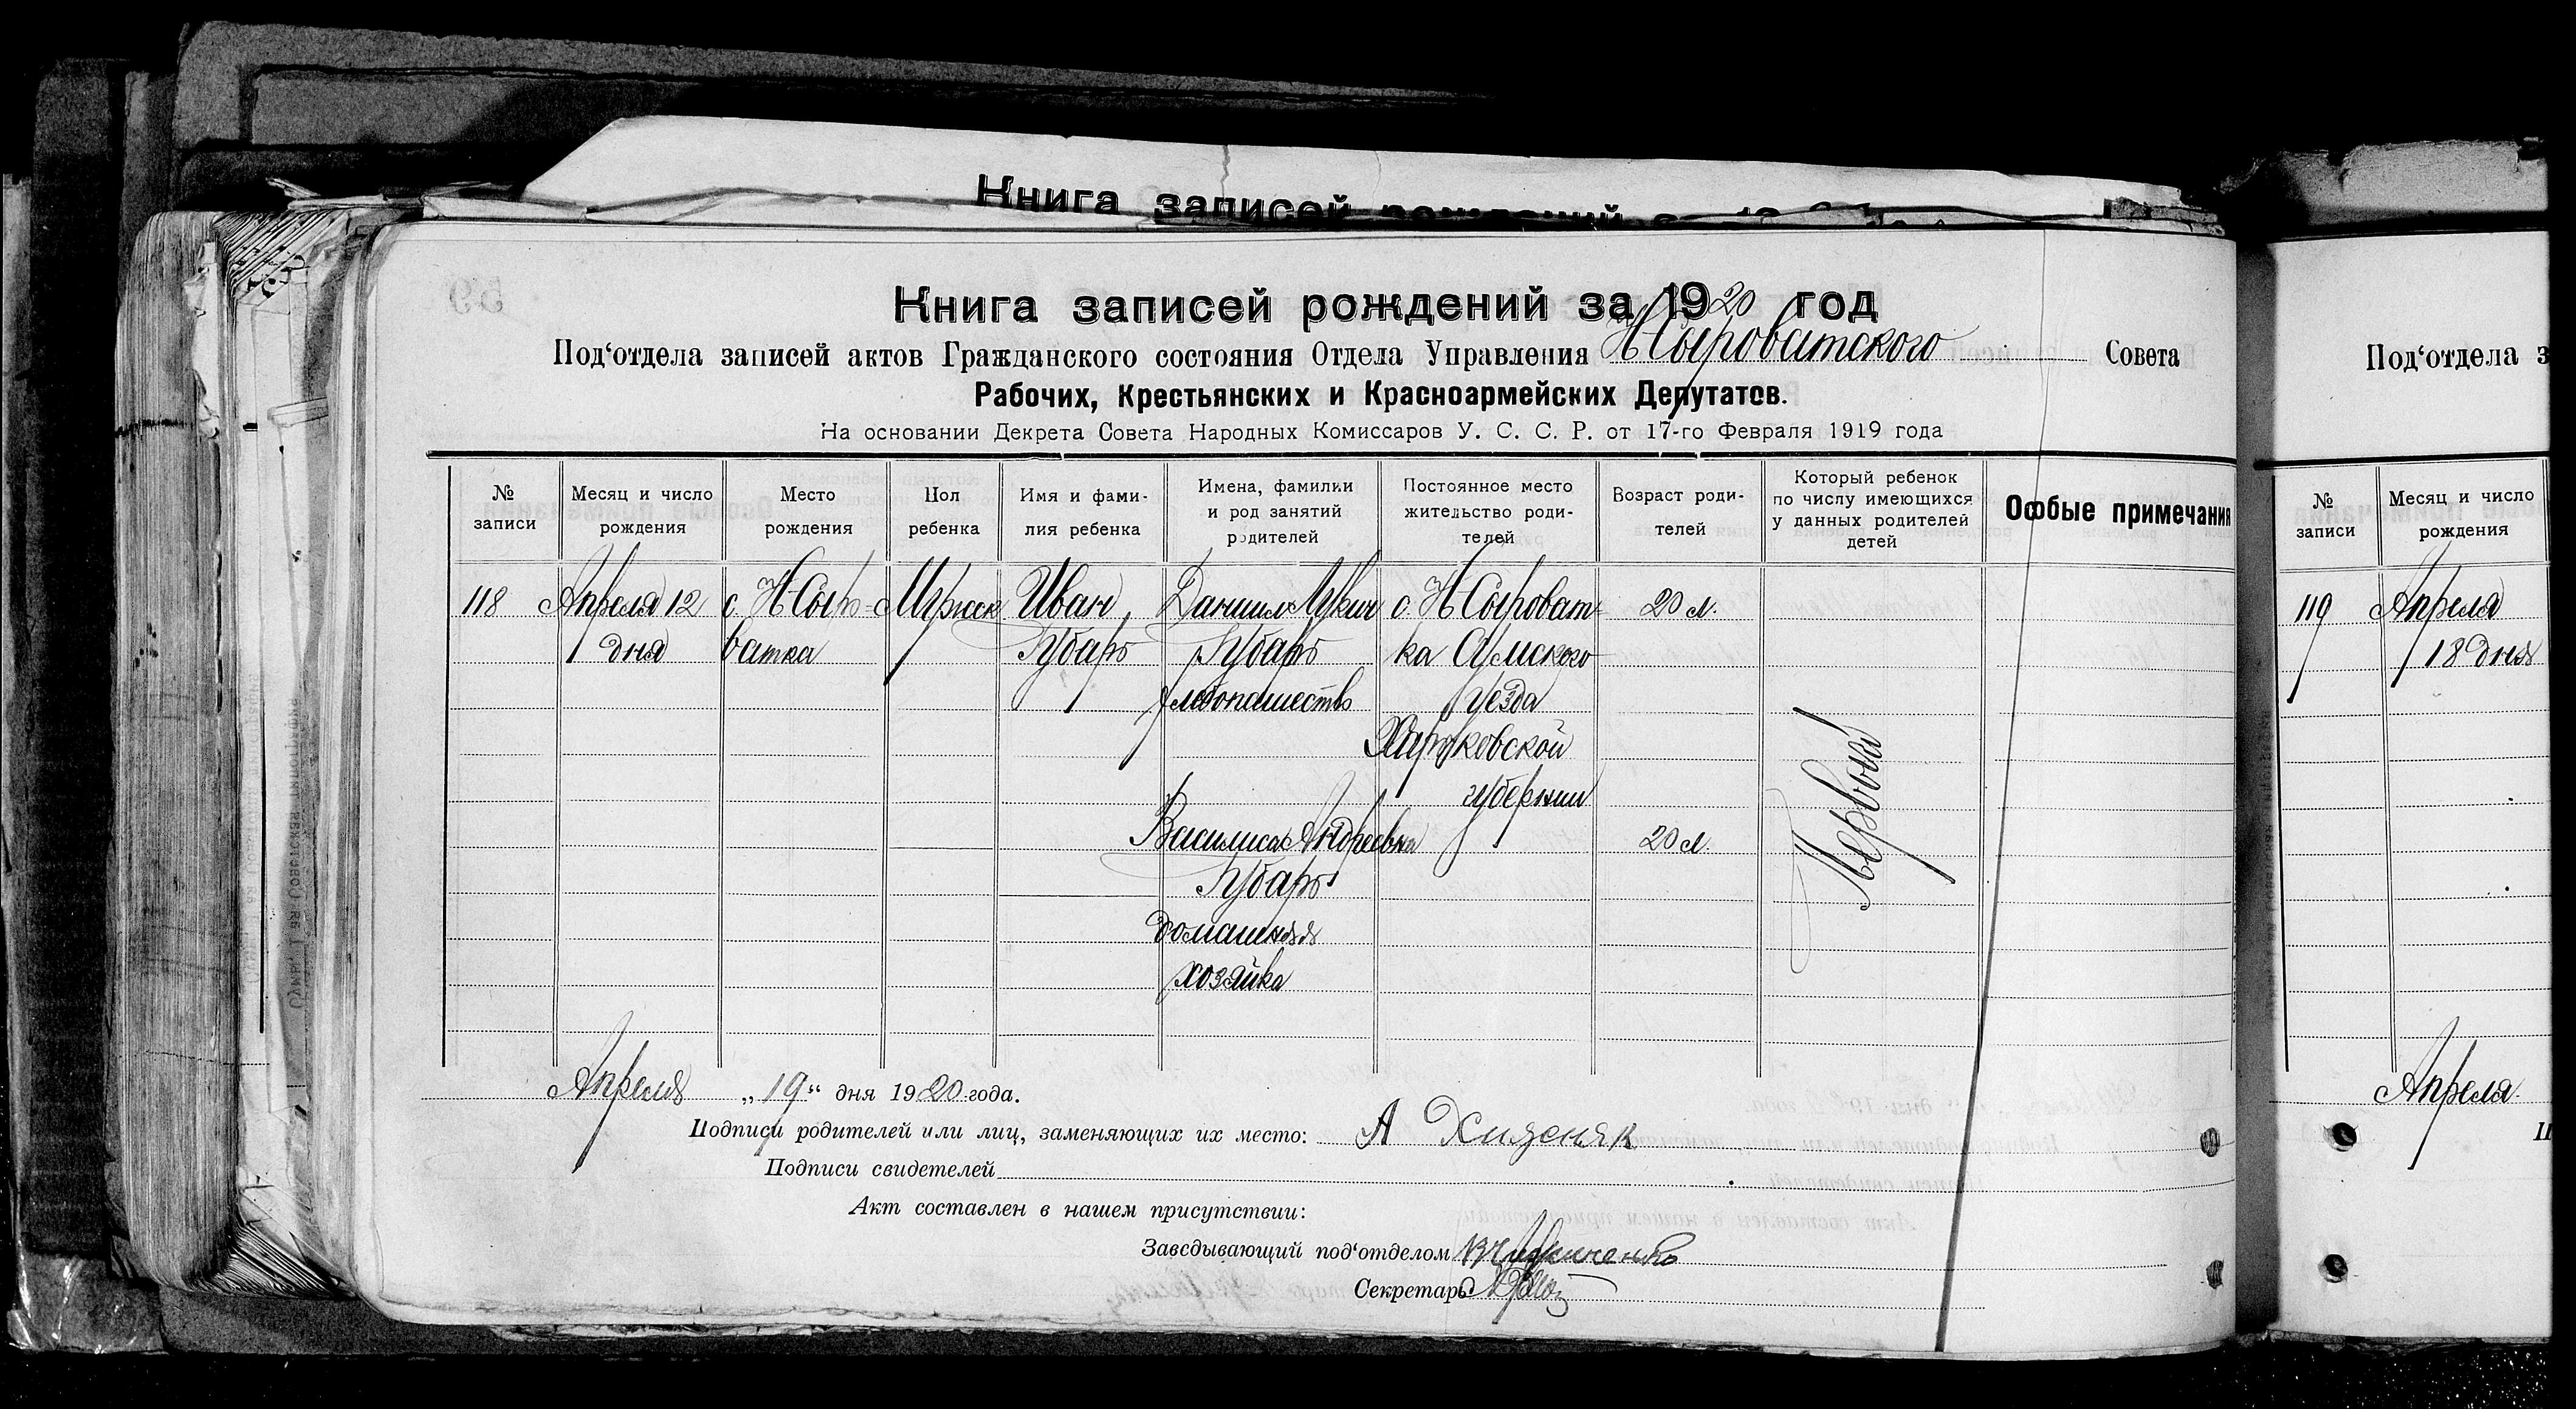 Книга записей
Книга записей рождений за 1920 год
Под‘отдела записей актов Гражданского состояния Отдела Управления Н Сыроватского Совета
Рабочих, Крестьянских и Красноармейских Депутатов.
На основании Декрета Совета Народных Комиссаров У. С. С. Р. от 17-го Февраля 1919 года
№ записи
Месяц и число рождения
Место рождения
Пол ребенка
Имя и фами-
лия ребенка
Имена, фамилки
и род занятий
родителей
Постоянное место
жительство роди-
телей
Возраст роди-
телей
Который ребенок
по числу имеющихся
у данных родителей
детей
Особые примечания
118
Апреля 12
дня
с. Н Сыро-
ватка
Мужск
Иван
Губарь
Даниил Лукич
Губарь
хлебопашество
с. Н Сыроват-
ка Сумского
уезда
Харьковской
губернии
20 л.
Василиса Андреевна
Губарь
домашняя
хозяйка
20 л.
Первый
Апреля „19“ дня 1920 года.
Подписи родителей или лиц, заменяющих их место: А Хижняк
Подписи свидетелей
Акт составлен в нашем присутствии:
Заведывающий под‘отделом
Секретарь
Под‘отдела з
№ записи
Месяц и число
рождения
119
Апреля
18 дня
Апреля